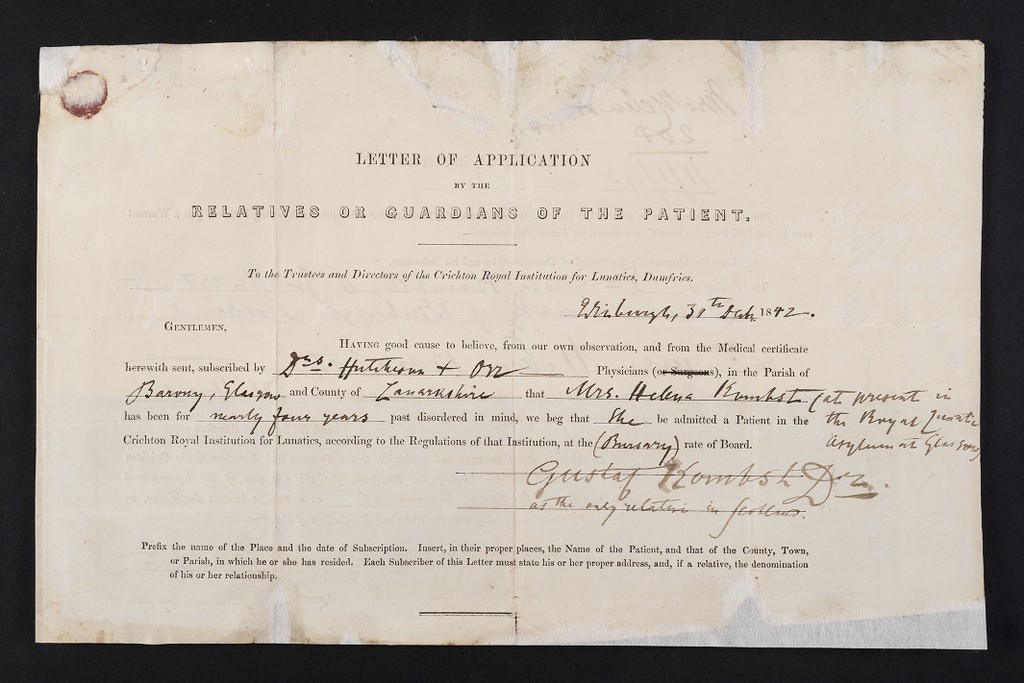 LETTER OF APPLICATION
BY THE
RELATIVES OR GUARDIANS OF THE PATIENT.
To the Trustees and Directors of the Crichton Royal Institution for Lunatics, Dumfries.
Edinburgh, 30th 1842.
GENTLEMEN,
HAVING good cause to believe, from our own observation, and from the Medical certificate
herewith sent, subscribed by Drs. Hutcheson + Orr Physicians (or Surgeons), in the Parish of
Barony, Glasgow and County of Lanarkshire that Mrs. Helena Kombst (at present in
has been for nearly four years past disordered in mind, we beg that She be admitted a Patient in the
the Royal Lunatic
Crichton Royal Institution for Lunatics, according to the Regulations of that Institution, at the (Bursary) rate of Board.
Asylum at Glasgow)
Gustaf Kombst Dr.
as the only relative in Scotland.
Prefix the name of the Place and the date of Subscription. Insert, in their proper places, the Name of the Patient, and that of the County, Town,
or Parish, in which he or she has resided. Each Subscriber of this Letter must state his or her proper address, and, if a relative, the denomination
of his or her relationship.